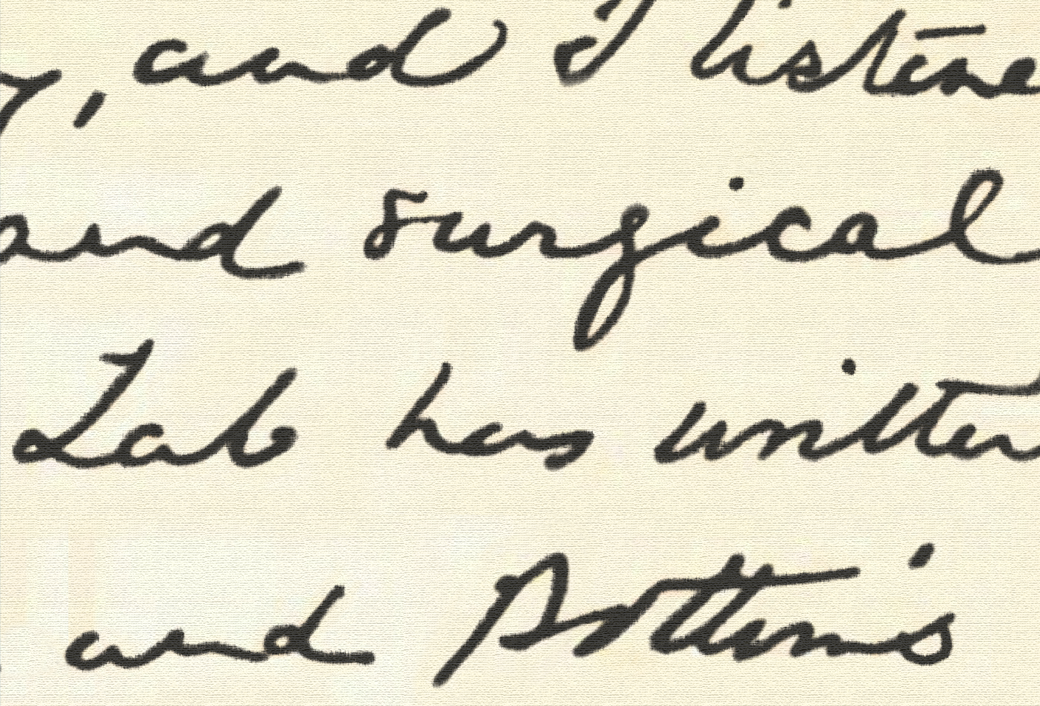 y, and I listene
and surgical
Lab has written
and